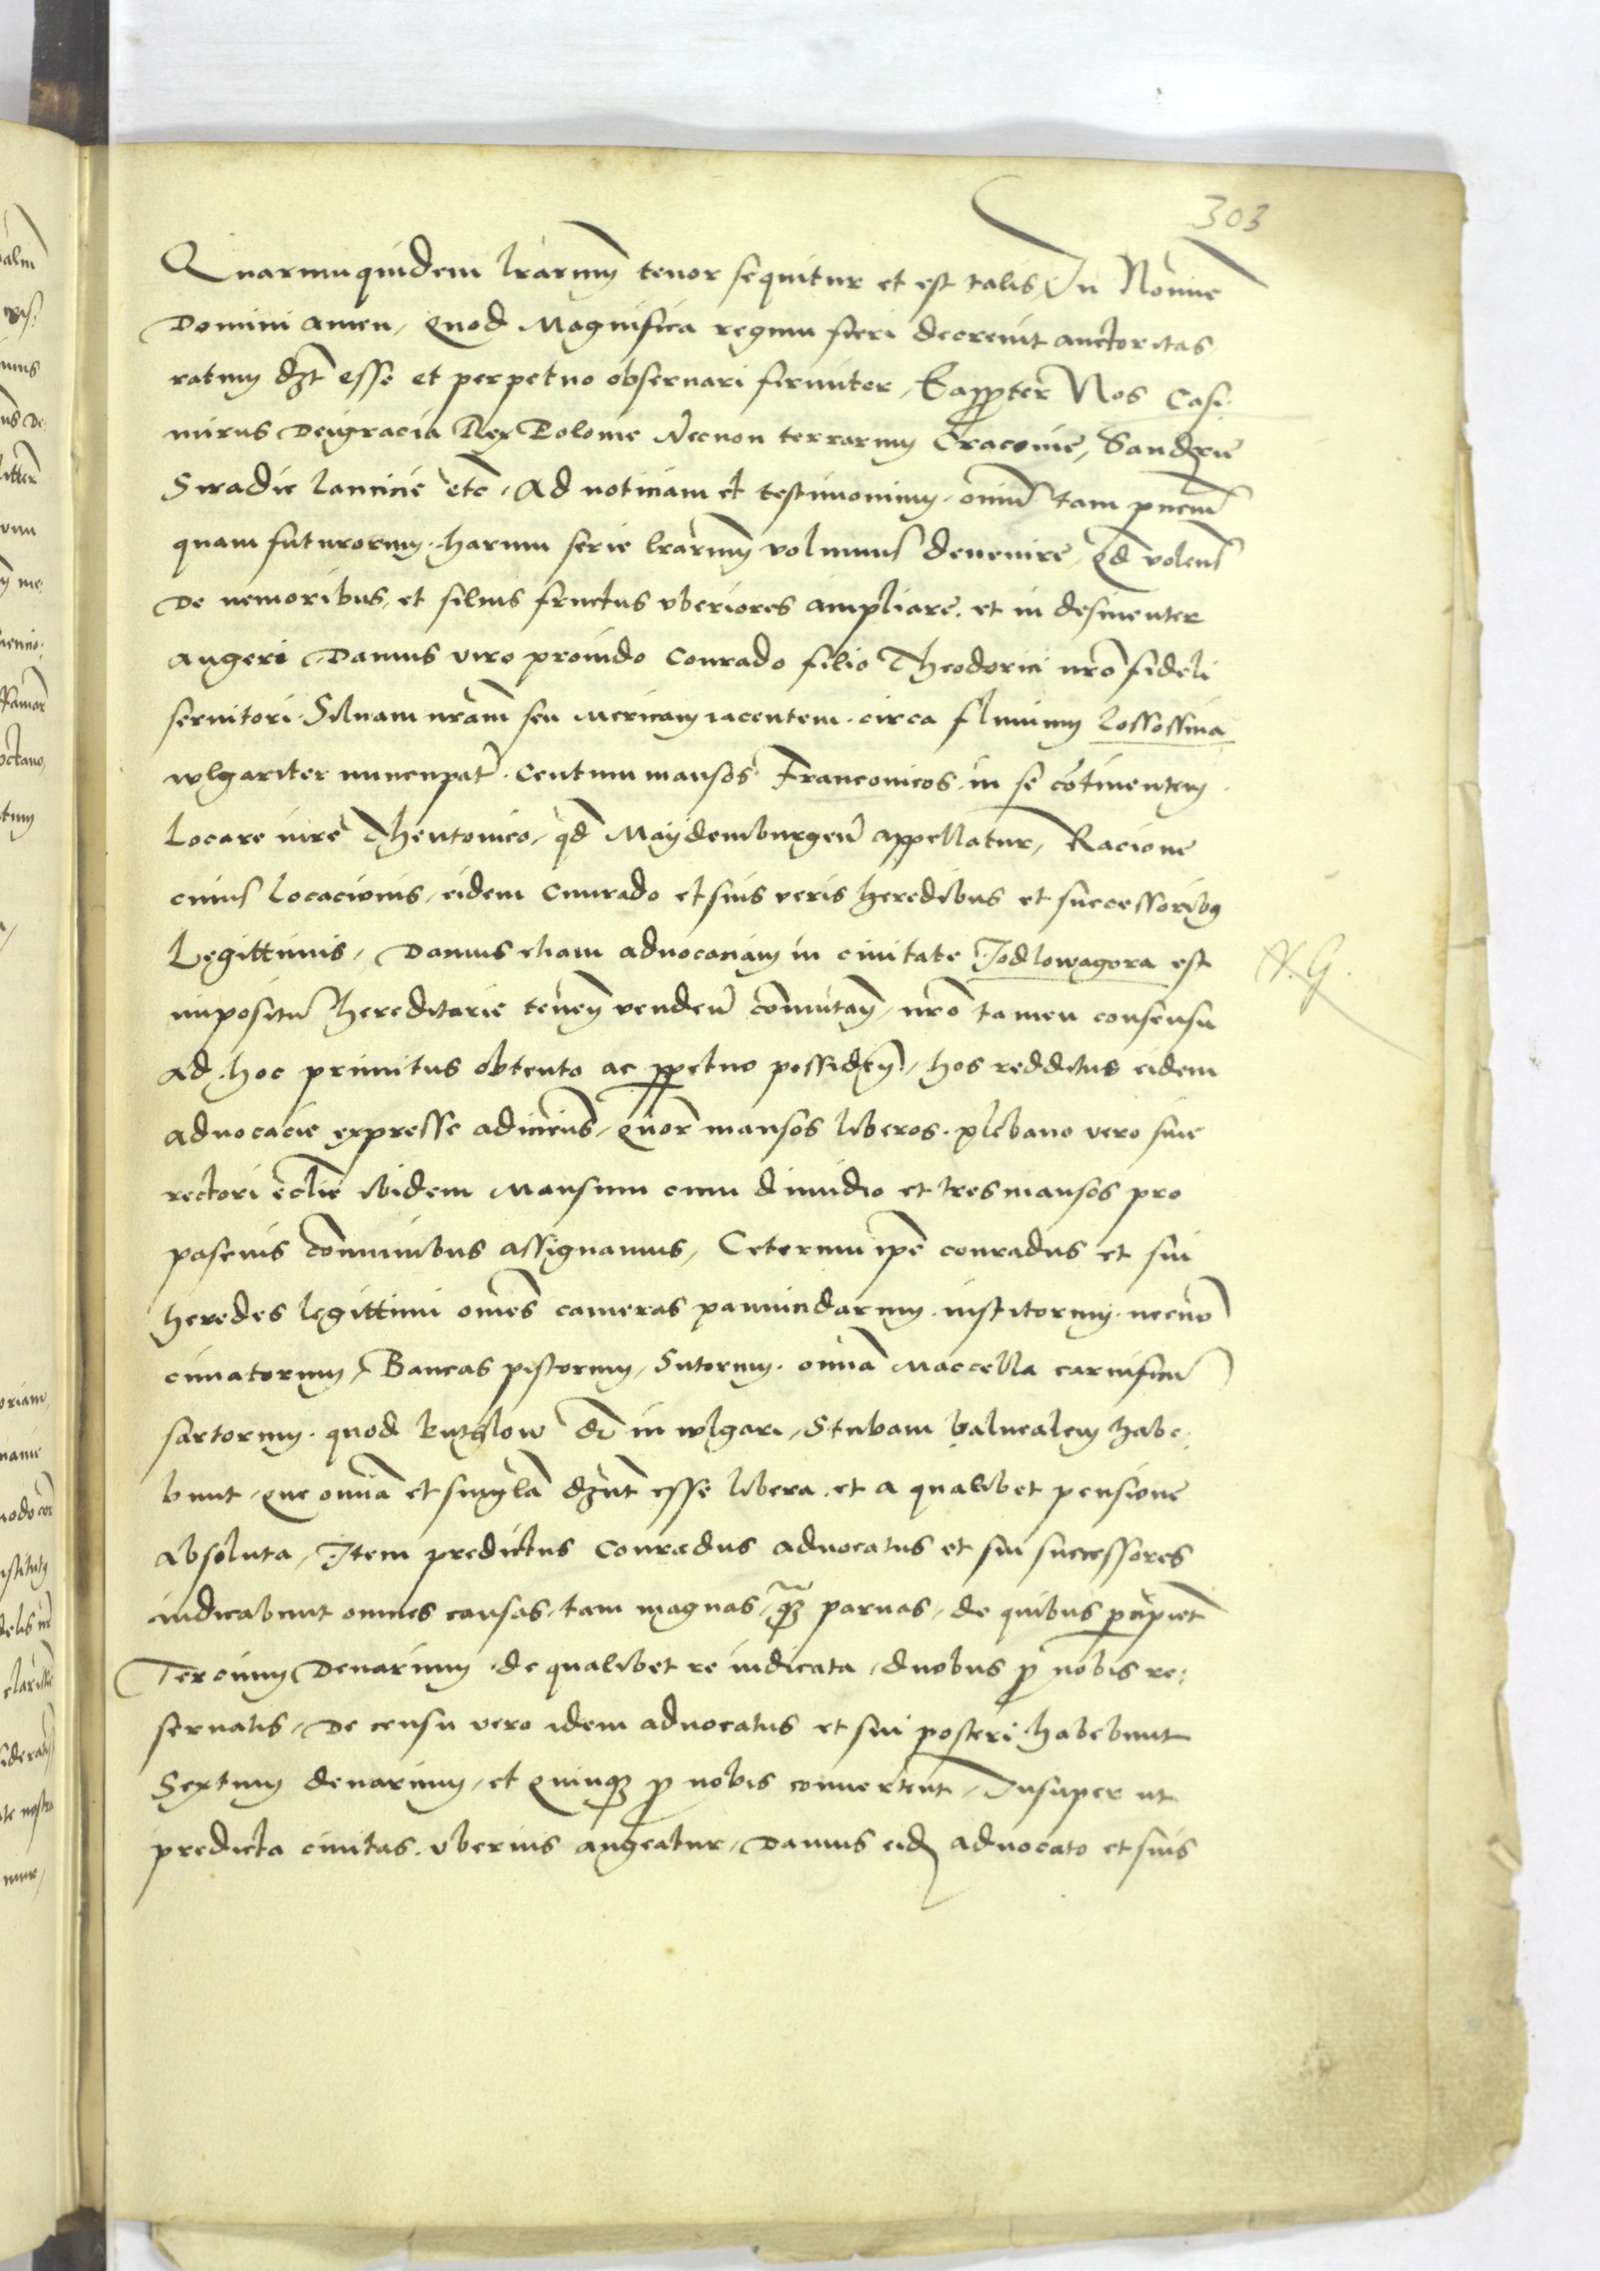 303
Quarum quidem lrarum tenor sequitur et est talis In Nomine
Domini amen, Quod Magnifica regum fieri decrevit auctoritas
ratum dzt esse et perpetuo observari firmiter, Eapropter Nos Casi-
mirus Dei gracia Rex Polonie Necnon terrarum Cracovie, Sandrie
Siradie lancicie etc, Ad noticiam et testimonium omnium tam pncium
quam futurorum harum serie lrarum volumus devenire, Qd volens
De nemoribus, et silvis fructus vberiores ampliare et in desinenter
augeri Damus viro provido Conrado filio Theodorici nro fideli
servitori Silvam nram seu Mericam iacentem circa fluvium Lossossina
wlgariter nuncupatr Centum mansos Franconicos in se cotinentem
Locare iure Theutonico, qd Maydemburgen appellatur, Racione
cuius locacionis, eidem Cunrado et suis veris heredibus et successoribus
Legittimis, Damus etiam advocaciam in civitate Jodlowagora est
impositu hereditarie tenen venden commutan, nro tamen consensu
Ad hoc primitus obtento ac ppetuo possiden, hos redditus eidem
advocacie expresse adicien, Quor mansos liberos plebano vero sive
rectori eclie ibidem Mansum cum dimidio et tres mansos pro
pascuis communibus assignamus, Ceterum ipe conradus et sui
heredes legittimi omes cameras pannicidarum institorum necno
cimatorum, Bancas pistorum, Sutorum omia Maccella carnificum
sartorum quod kuthlow dr in wlgari, Stubam balnealem habe-
bunt, que omia et singla dznt esse libera et a qualibet pensione
Absoluta, Item predictus Conradus advocatus et sui successores
iudicabunt omnes causas, tam magnas, qz parvas, de quibus pcipiet
Tercium Denarium de qualibet re iudicata, duobus p nobis re-
servatis, De censu vero idem advocatus et sui posteri habebunt
Sextum denarium, et Quinqz p nobis convertent, Insuper ut
predicta civitas vberius augeatur, Damus eidem advocato et suis